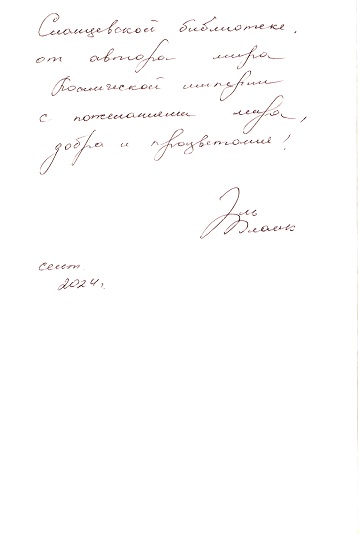 Сланцевской библиотеке.
от автора мира
Космической империи
с пожеланиями мира,
добра и процветания!
Эль
Бланк
сент
2024г.